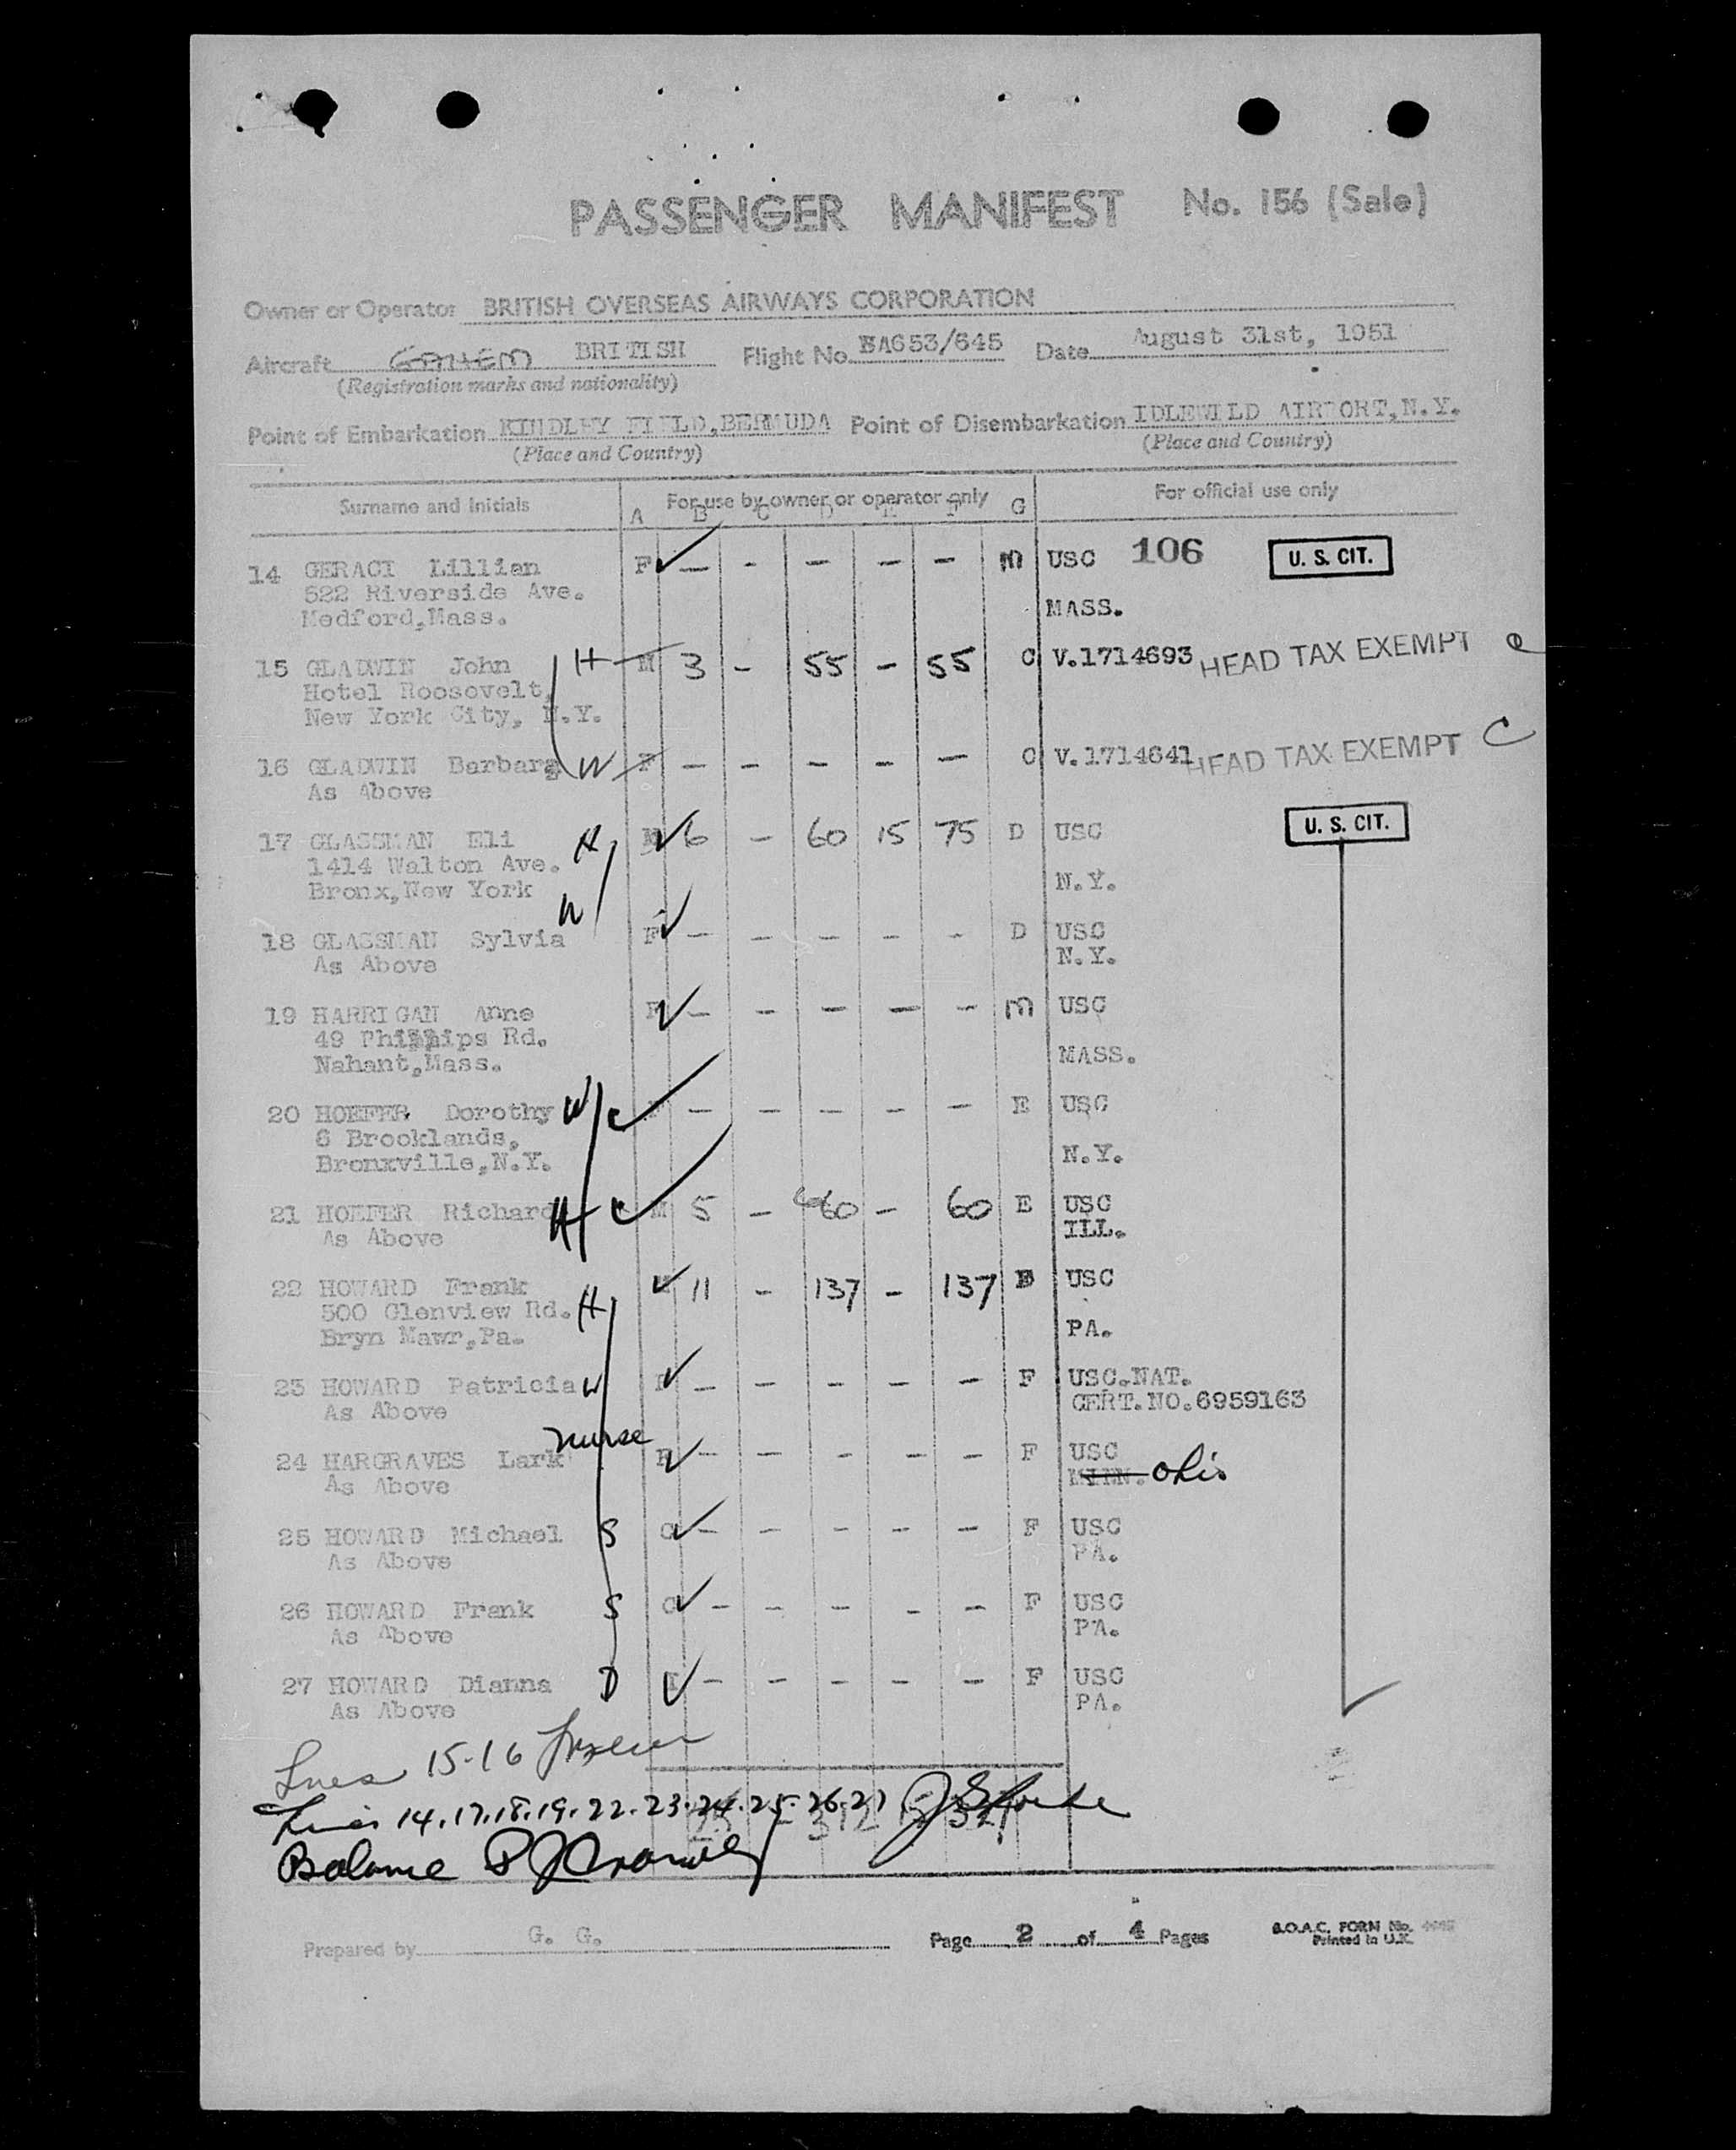 PASSENGER MANIFEST No. 156 (Sale)
Owner or Operator BRITISH OVERSEAS AIRWAYS CORPORATION
Aircraft GAHEM BRITISH Flight No. BA653/645 Date August 31st, 1951
(Registration marks and nationality)
Point of Embarkation KINDLEY FIELD,BERMUDA Point of Disembarkation IDLEWILD AIRPORT,N.Y.
(Place and Country) (Place and Country)
Surname and Initials For use by owner or operator only For official use only
A B C D E F G
14 GERACI Lillian F — - — — — M USC 106 U. S. CIT.
522 Riverside Ave.
Medford,Mass. MASS.
15 GLADWIN John H M 3 - 55 - 55 C V.1714693 HEAD TAX EXEMPT C
Hotel Roosevelt,
New York City, N.Y.
16 GLADWIN Barbara W F — — — — — C V.1714641 HEAD TAX EXEMPT C
As Above
17 GLASSMAN Eli H M 6 - 60 15 75 D USC U. S. CIT.
1414 Walton Ave.
Bronx,New York N.Y.
W
18 GLASSMAN Sylvia F — — — — - D USC
As Above N.Y.
19 HARRIGAN Anne F — — — — — M USC
49 Phillips Rd.
Nahant,Mass. MASS.
20 HOEFER Dorothy W F — — — — — E USC
6 Brooklands,
Bronxville,N.Y. N.Y.
21 HOEFER Richard H M 5 - 60 - 60 E USC
As Above ILL.
22 HOWARD Frank M 11 - 137 - 137 USC
500 Glenview Rd. H
Bryn Mawr,Pa. PA.
23 HOWARD Patricia W F — — — — — F USC.NAT.
As Above CERT.NO.6959163
nurse
24 HARGRAVES Lark F — — — — — F USC
As Above MINN. Ohio
25 HOWARD Michael S C — — — — — F USC
As Above PA.
26 HOWARD Frank S C — — — - — F USC
As Above PA.
27 HOWARD Dianna D I — — — — — F USC
As Above PA.
Lines 15-16
Lines 14.17.18.19.22.23.24.25.26.27
Balance
Prepared by G. G. Page 2 of 4 Pages B.O.A.C. FORM No.
Printed in U.K.